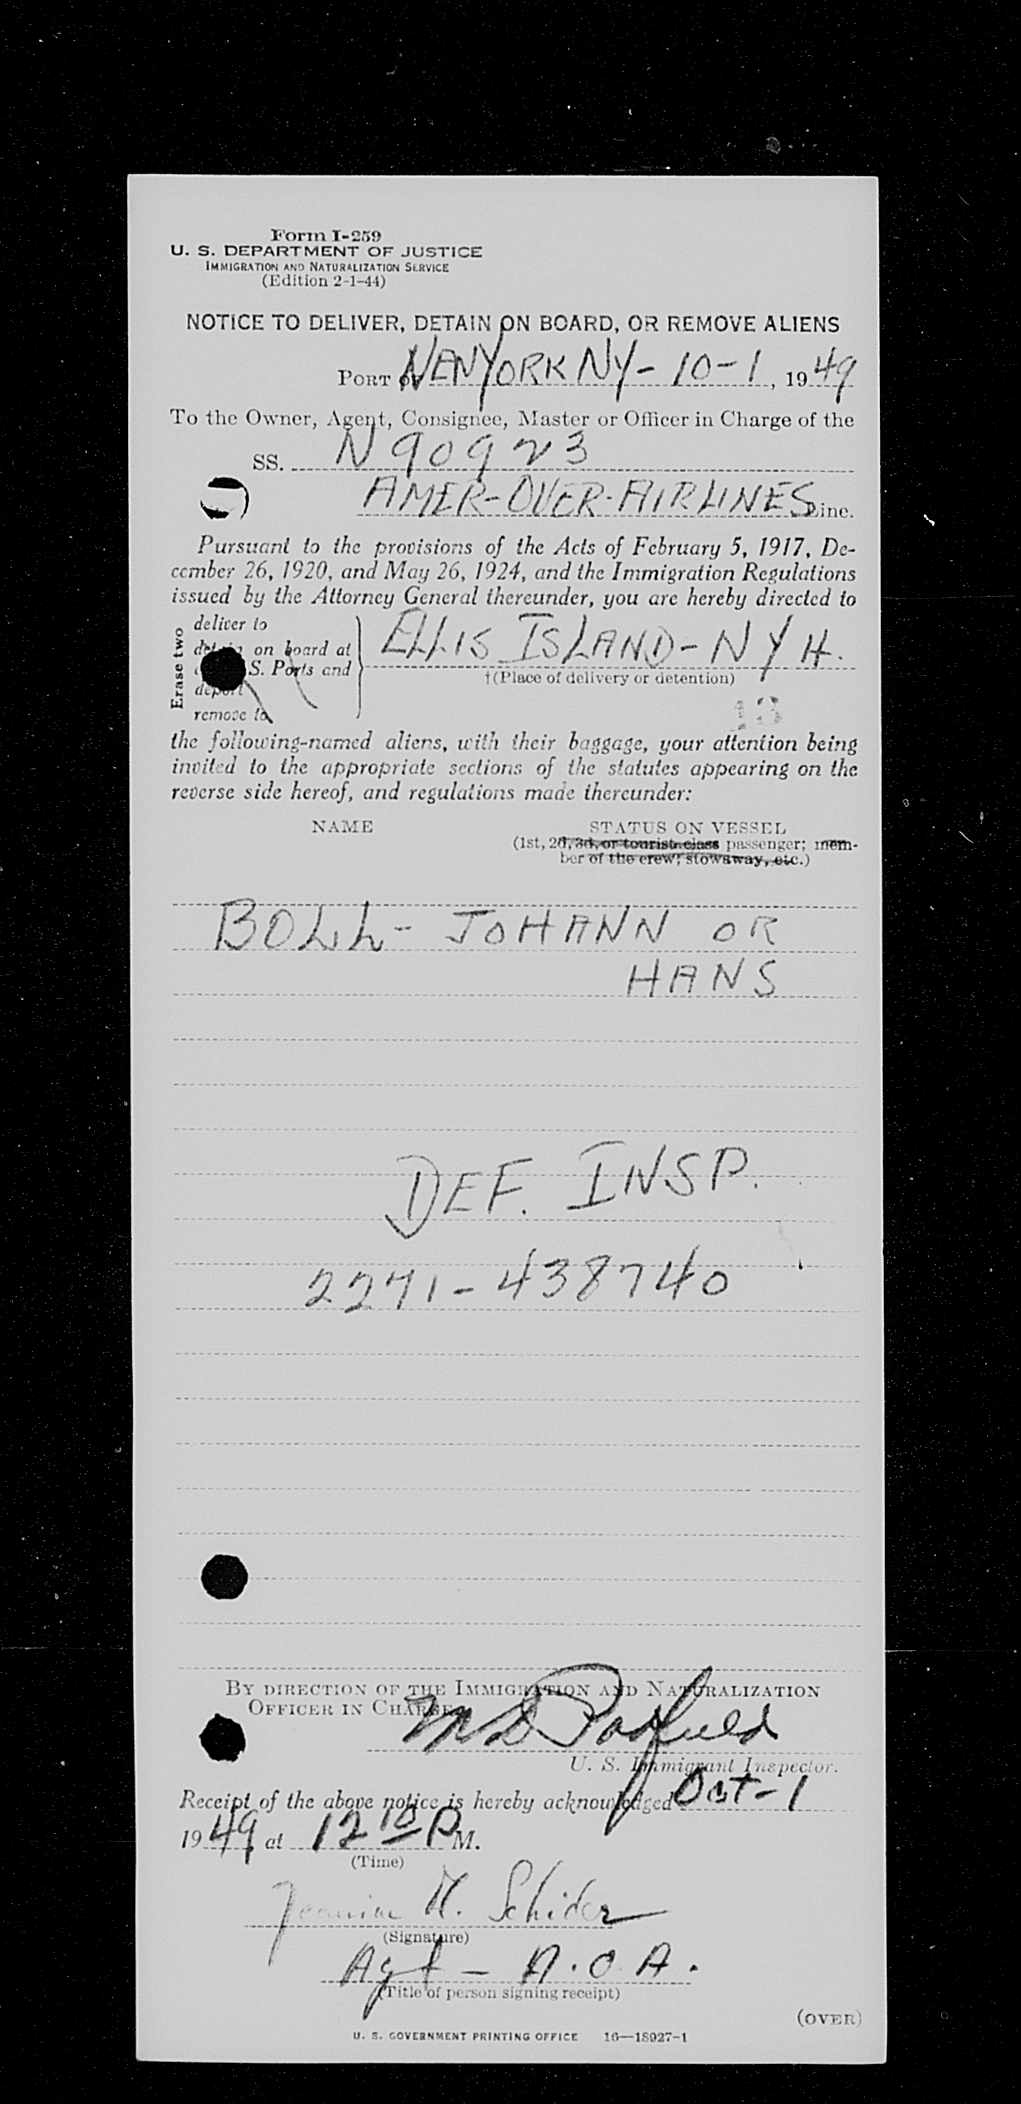 Form I-259
U. S. DEPARTMENT OF JUSTICE
IMMIGRATION AND NATURALIZATION SERVICE
(Edition 2-1-44)
NOTICE TO DELIVER, DETAIN ON BOARD, OR REMOVE ALIENS
PORT of NEW YORK NY - 10-1, 1949
To the Owner, Agent, Consignee, Master or Officer in Charge of the
SS. N90923
AMER-OVER-AIRLINES Line.
Pursuant to the provisions of the Acts of February 5, 1917, De-
cember 26, 1920, and May 26, 1924, and the Immigration Regulations
issued by the Attorney General thereunder, you are hereby directed to
Erase two
deliver to
detain on board at
S. Ports and
deport
remove to
ELLIS ISLAND - NYH.
†(Place of delivery or detention)
13
the following-named aliens, with their baggage, your attention being
invited to the appropriate sections of the statutes appearing on the
reverse side hereof, and regulations made thereunder:
NAME STATUS ON VESSEL
(1st, 2d, 3d, or tourist class passenger; mem-
ber of the crew; stowaway, etc.)
BOLL - JOHANN OR
HANS
DEF. INSP.
2271-438740
BY DIRECTION OF THE IMMIGRATION AND NATURALIZATION
OFFICER IN CHARGE
U. S. Immigrant Inspector.
Receipt of the above notice is hereby acknowledged Oct-1
1949 at 12 10 P M.
(Time)
H. Schider
(Signature)
Agt - A.O.A.
(Title of person signing receipt)
(OVER)
U. S. GOVERNMENT PRINTING OFFICE 16—18927-1